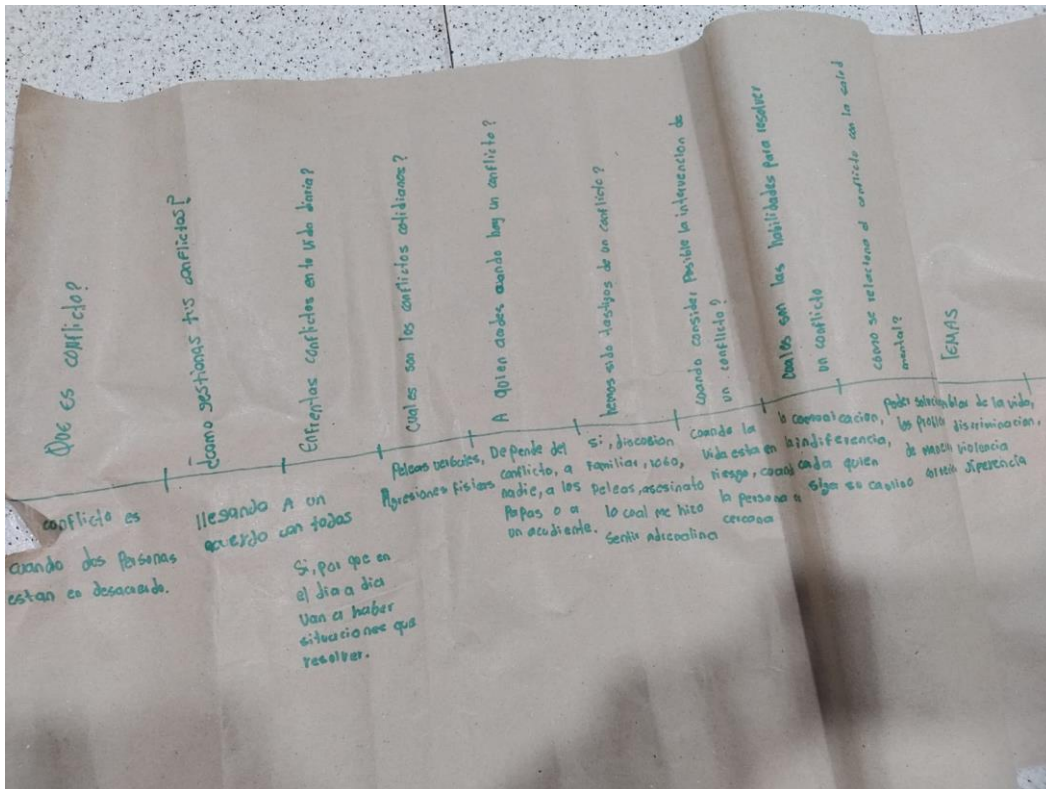 Que es conflicto?
¿como gestionas tus conflictos?
Enfrentas conflictos en tu vida diaria?
Cual es son los conflictos cotidianos?
A quien acudes cuando hay un conflicto?
hemos sido tastigos de un conflicto?
cuando consider Posible la intervencion de
un conflicto?
Cuales son las habilidades para resolver
un conflicto
cómo se relaciona el conflicto con la salud
mental?
TEMAS
conflicto es
cuando dos Personas
estan en desacuerdo.
llegando A un
acuerdo con todos
Si, por que en
el dia a dia
Van a haber
situaciones que
resolver.
Peleas verbales,
Agresiones fisicas
Depende del
conflicto, a
nadie, a los
Papas o a
un acudiente.
Si, discusion
Familiar, robo,
Peleas, asesinato
lo cual me hizo
Sentir adrenalina
cuando la
vida esta en
riesgo, cuando
la persona
cercana
la comunicacion,
la indiferencia,
cada quien
siga su camino
Poder
los
de
de la vida,
discriminacion,
violencia